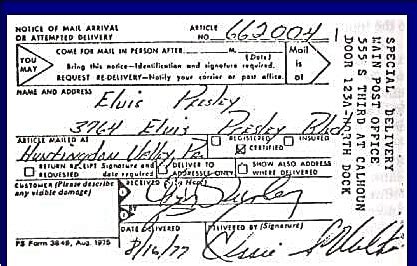 NOTICE OF MAIL ARRIVAL
OR ATTEMPTED DELIVERY
ARTICLE
NO. 662004
YOU
MAY
COME FOR MAIL IN PERSON AFTER M.
(Date)
Bring this notice—Identification and signature required.
REQUEST RE-DELIVERY—Notify your carrier or post office.
Mail
is
at
NAME AND ADDRESS
Elvis Presley
3764 Elvis Presley Blvd
ARTICLE MAILED AT
Huntingdon Valley Pa.
REGISTERED
INSURED
CERTIFIED
RETURN RECEIPT Signature and
REQUESTED date required
DELIVER TO
ADDRESSEE ONLY
SHOW ALSO ADDRESS
WHERE DELIVERED
CUSTOMER (Please describe
any visible damage)
RECEIVED
BY
DATE DELIVERED
8/16/77
DELIVERED BY (Signature)
PS Form 3849, Aug. 1975
SPECIAL DELIVERY
MAIN POST OFFICE
555 S THIRD AT CALHOUN
DOOR 123A-NORTH DOCK